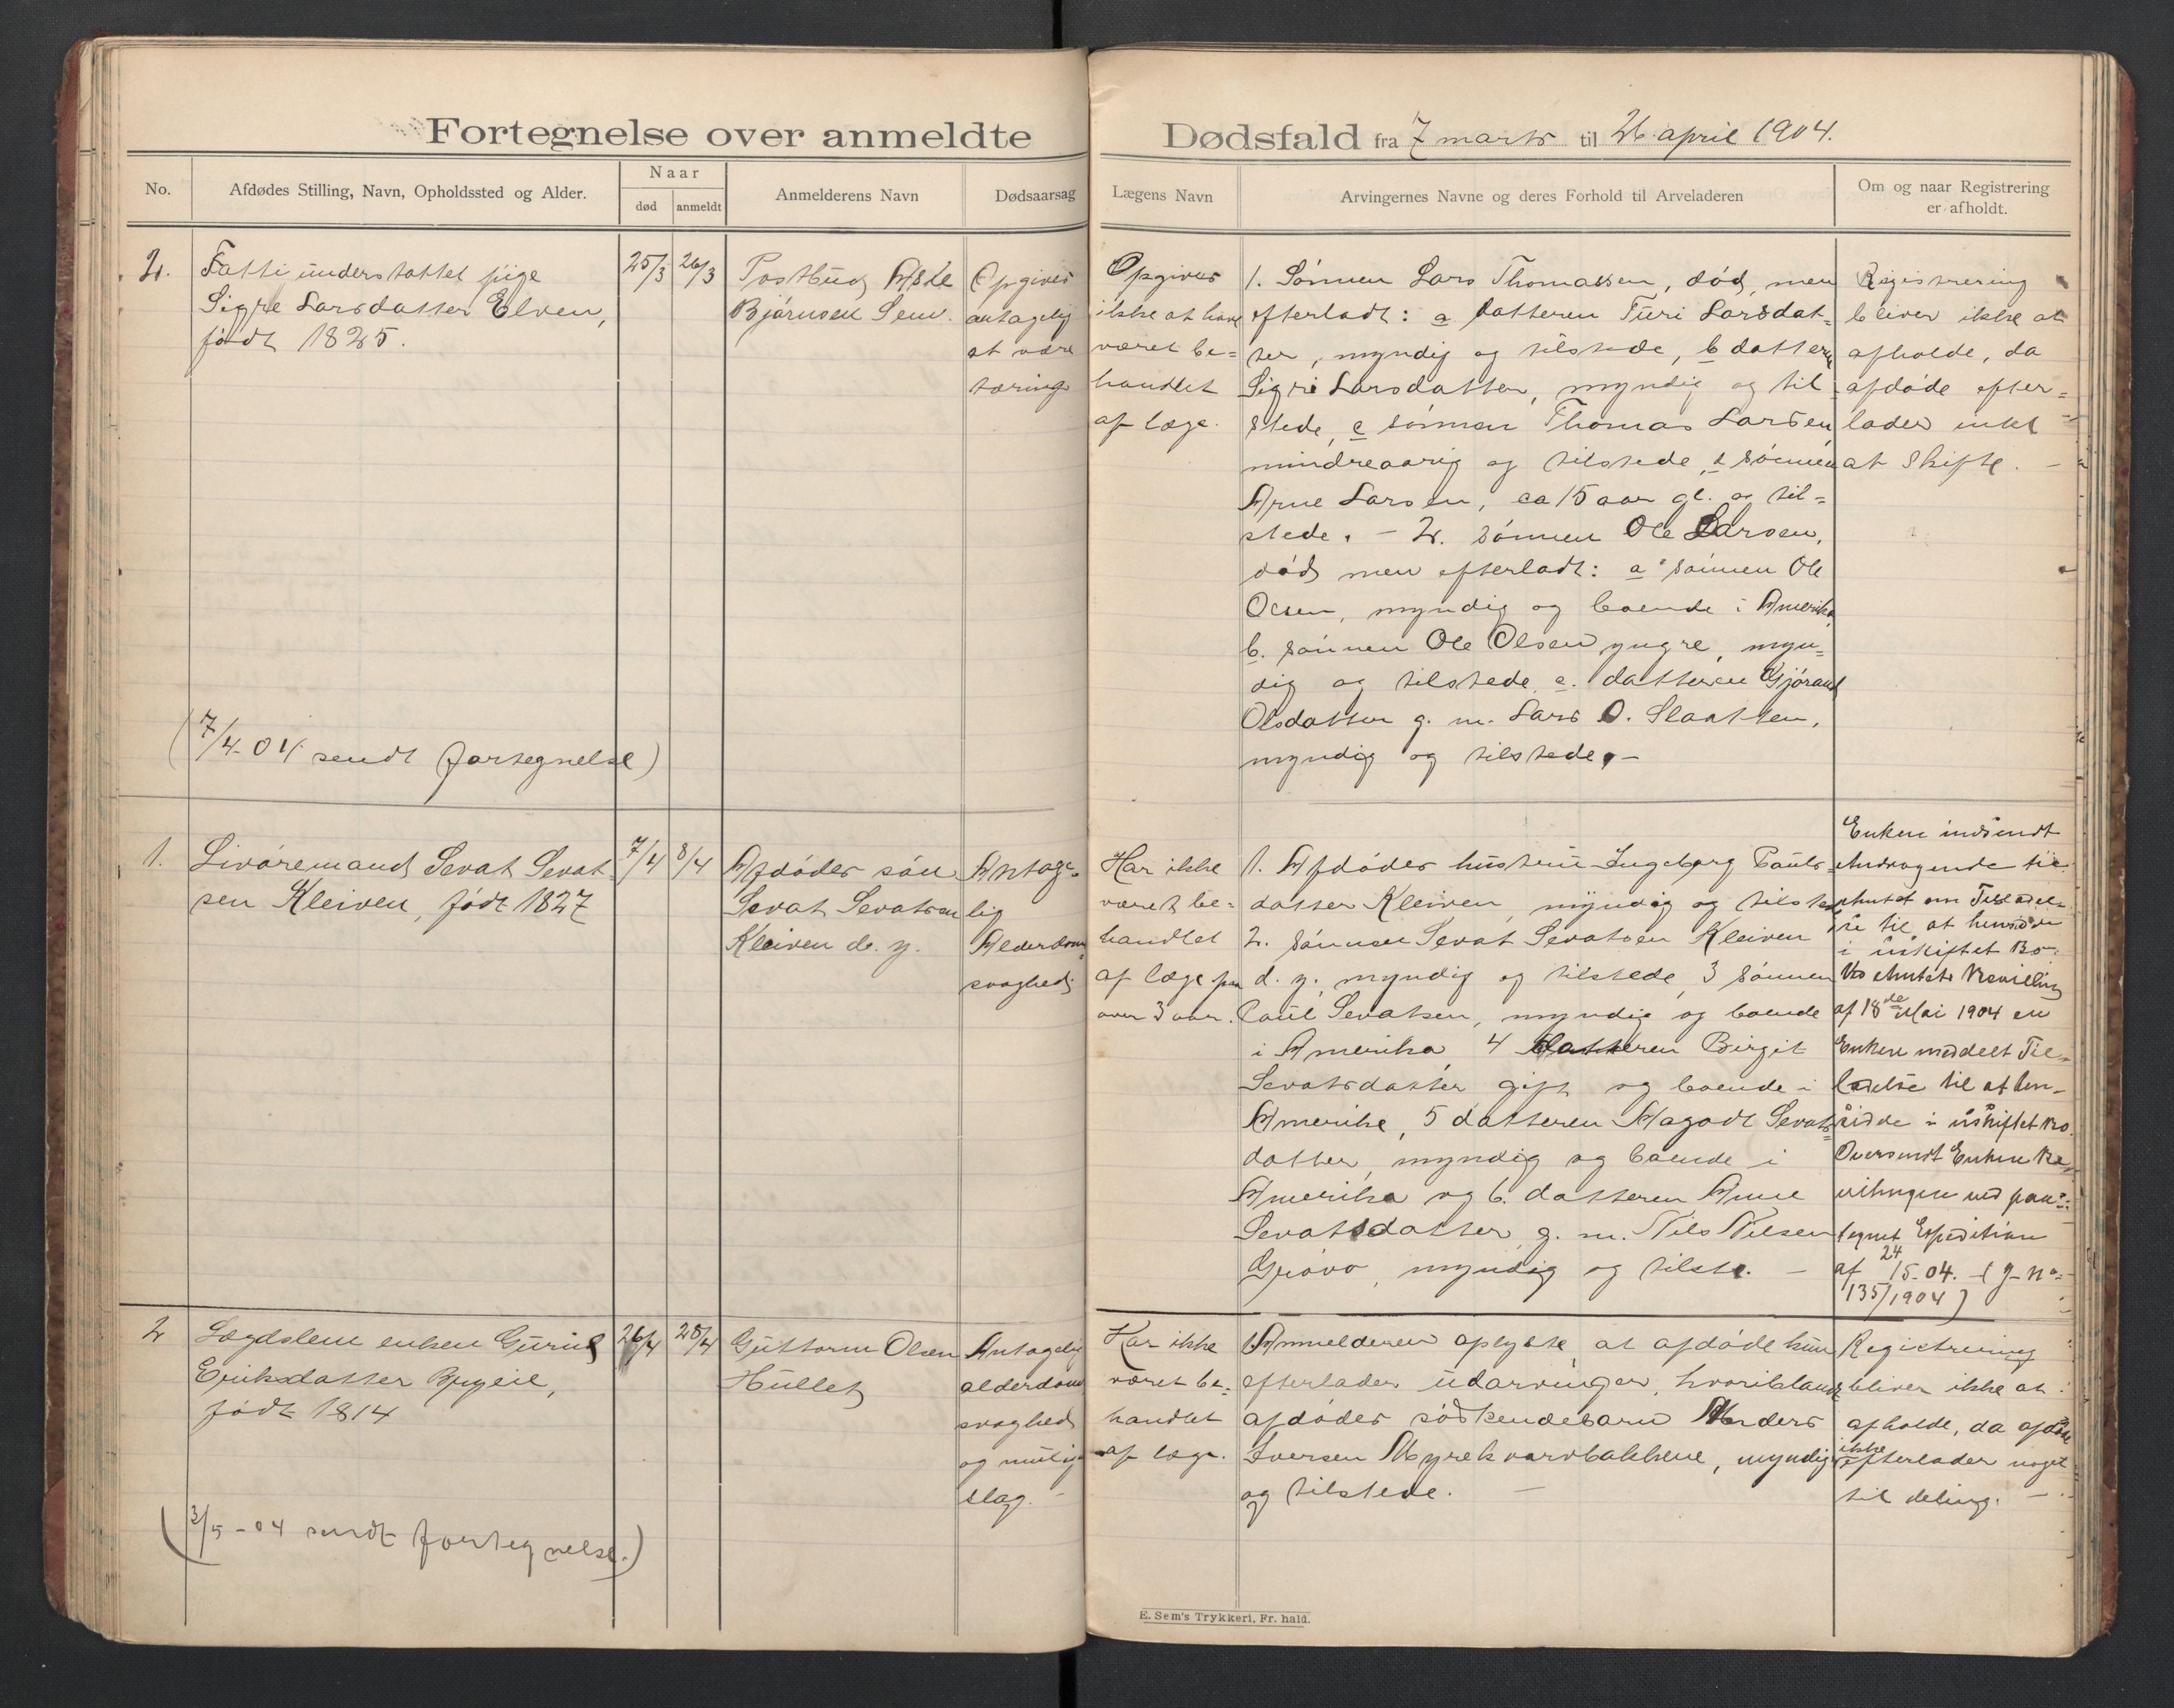 Fortegnelse over anmeldte Dødsfald fra 7 marts til 26. april 1904.
No.
Afdødes Stilling, Navn, Opholdssted og Alder.
Naar
død
anmeldt
Anmelderens Navn
Dødsaarsag
Lægens Navn
Arvingernes Navne og deres Forhold til Arveladeren
Om og naar Registrering
er afholdt.
2.
Fattigunderstøttet pige
Sigre Larsdatter Elven,
født 1825.
25/3
26/3
Posthus
Bjørnsen Sem.
Opgives
antagelig
at være
tæring
Opgives
ikke at have
været be=
handlet
af læge.
1. Sønnen Lars Thomassen, død, men
efterladt: a datteren Turi Larsdat=
ter, myndig og tilstede, b datteren
Sigri Larsdatter, myndig og til
stede, c sønnen Thomas Larsen,
mindreaarig og tilstede, d sønnen
Arne Larsen, ca 15 aar gl. og til=
stede. - 2. sønnen Ole Larsen,
død men efterladt: a sønnen Ole
Olsen, myndig og boende i Amerika
b. sønnen Ole Olsen yngre, myn=
dig og tilstede c. datteren Gjørand
Olsdatter g. m. Lars O. Slaatten,
myndig og tilstede. -
Registrering
bliver ikke at
afholde, da
afdøde efter=
lader intet
at skifte. -
(7/4-04 sendt fortegnelse)
1.
Livøremand Sevat Sevat
sen Kleiven, født 1827
7/4
8/4
Afdødes søn
Sevat Sevatsen
Kleiven d. y.
Antage=
lig
Alderdoms=
svaghed
Har ikke
været be=
handlet
af læge paa
over 3 aar.
1. Afdødes hustru Ingeborg Pauls=
datter Kleiven, myndig og tilstede
2. sønnen Sevat Sevatsen Kleiven
d. y. myndig og tilstede, 3 sønnen
Paul Sevatsen, myndig og boende
i Amerika, 4 datteren Birgit
Sevatsdatter gift og boende i
Amerika, 5 datteren Magodt Sevats=
datter, myndig og boende i
Amerika og 6. datteren Anne
Sevatsdatter, g. m. Nils Nilsen
Grøvo, myndig og tilst. -
Enken indsendt
Andragende til
Amtet om Tilladel=
se til at hensidde
i uskiftet Bo.
Ved Amtets Bevilling
af 18de Mai 1904 er
Enken meddelt Til=
ladelse til at hen=
sidde i uskiftet Bo.
Oversendt Enken Be=
villingen ved paa=
tegnet Expedition
af 24/5-04. (J-No
135/1904)
2
Lægdslem enken Gurid
Eriksdatter
født 1814
26/4
28/4
Guttorm Olsen
Hullet
Antagelig
alderdoms
svaghed
og mulig
slag. -
Har ikke
været be=
handlet
af læge.
Anmelderen oplyste, at afdøde kun
efterlader udarvinger, hvoriblandt
afdødes søskendebarn Anders
Iversen Myrekvarvbakkene, myndig
og tilstede. -
Registrering
bliver ikke at
afholde, da afdøde
ikke efterlader noget
til deling. -
(3/5-04 sendt fortegnelse.)
E. Sem's Trykkeri, Fr. hald.